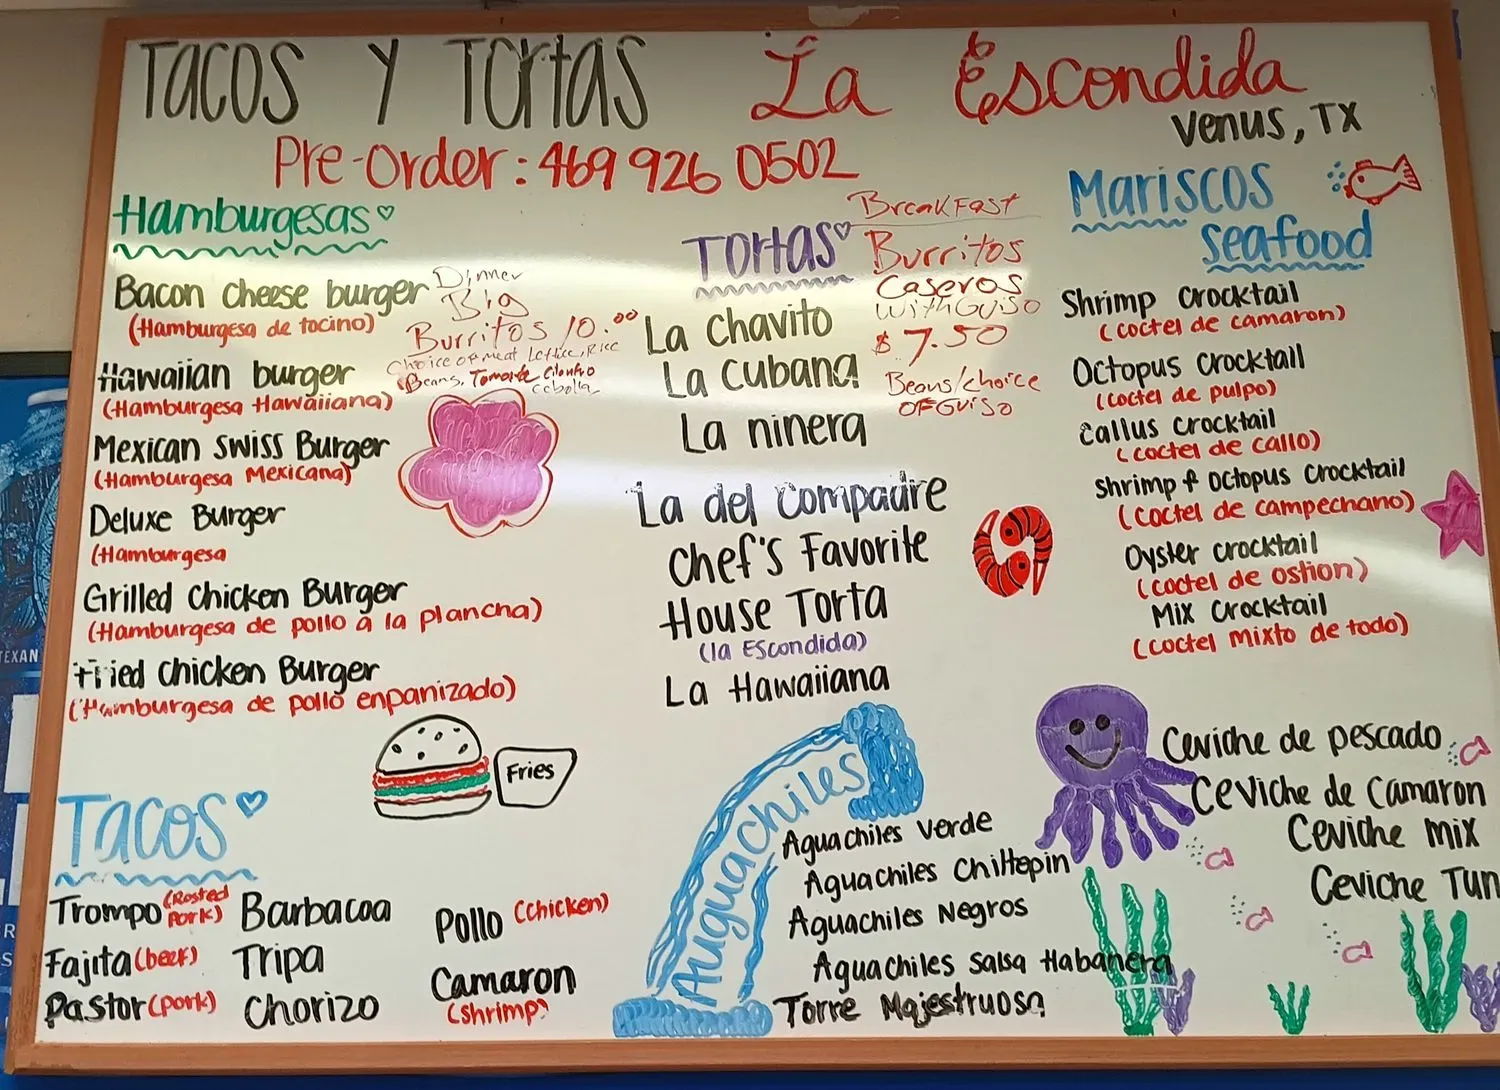 Tacos y Tortas La Escondida
Venus, TX
Pre-Order: 469 926 0502
Hamburgesas
Bacon cheese burger
(Hamburgesa de tocino)
Hawaiian burger
(Hamburgesa Hawaiiana)
Mexican Swiss Burger
(Hamburgesa Mexicana)
Deluxe Burger
(Hamburgesa
Grilled Chicken Burger
(Hamburgesa de pollo a la plancha)
Fried Chicken Burger
(Hamburgesa de pollo enpanizado)
Fries
Dinner
Big
Burritos 10.00
Choice of meat Lettice, Rice
Beans, Tomate Cilantro
cebolla
Tacos
Trompo (Rosted Pork)
Fajita (beef)
Pastor (pork)
Barbacoa
Tripa
Chorizo
Pollo (chicken)
Camaron
(shrimp)
Tortas
La Chavito
La Cubana
La ninera
La del Compadre
Chef's Favorite
House Torta
(la Escondida)
La Hawaiiana
BreakFast
Burritos
Caseros
with Guiso
$7.50
Beans/choice
OF Guiso
Mariscos
Seafood
Shrimp Crocktail
(coctel de camaron)
Octopus Crocktail
(coctel de pulpo)
Callus Crocktail
(coctel de callo)
Shrimp & Octopus Crocktail
(coctel de campechano)
Oyster crocktail
(coctel de ostion)
Mix Crocktail
(coctel mixto de todo)
Ceviche de pescado
Ceviche de Camaron
Ceviche mix
Ceviche Tun
Auguachiles
Aguachiles Verde
Aguachiles Chiltepin
Aguachiles Negros
Aguachiles Salsa Habanera
Torre Majestruosa
TEXAN